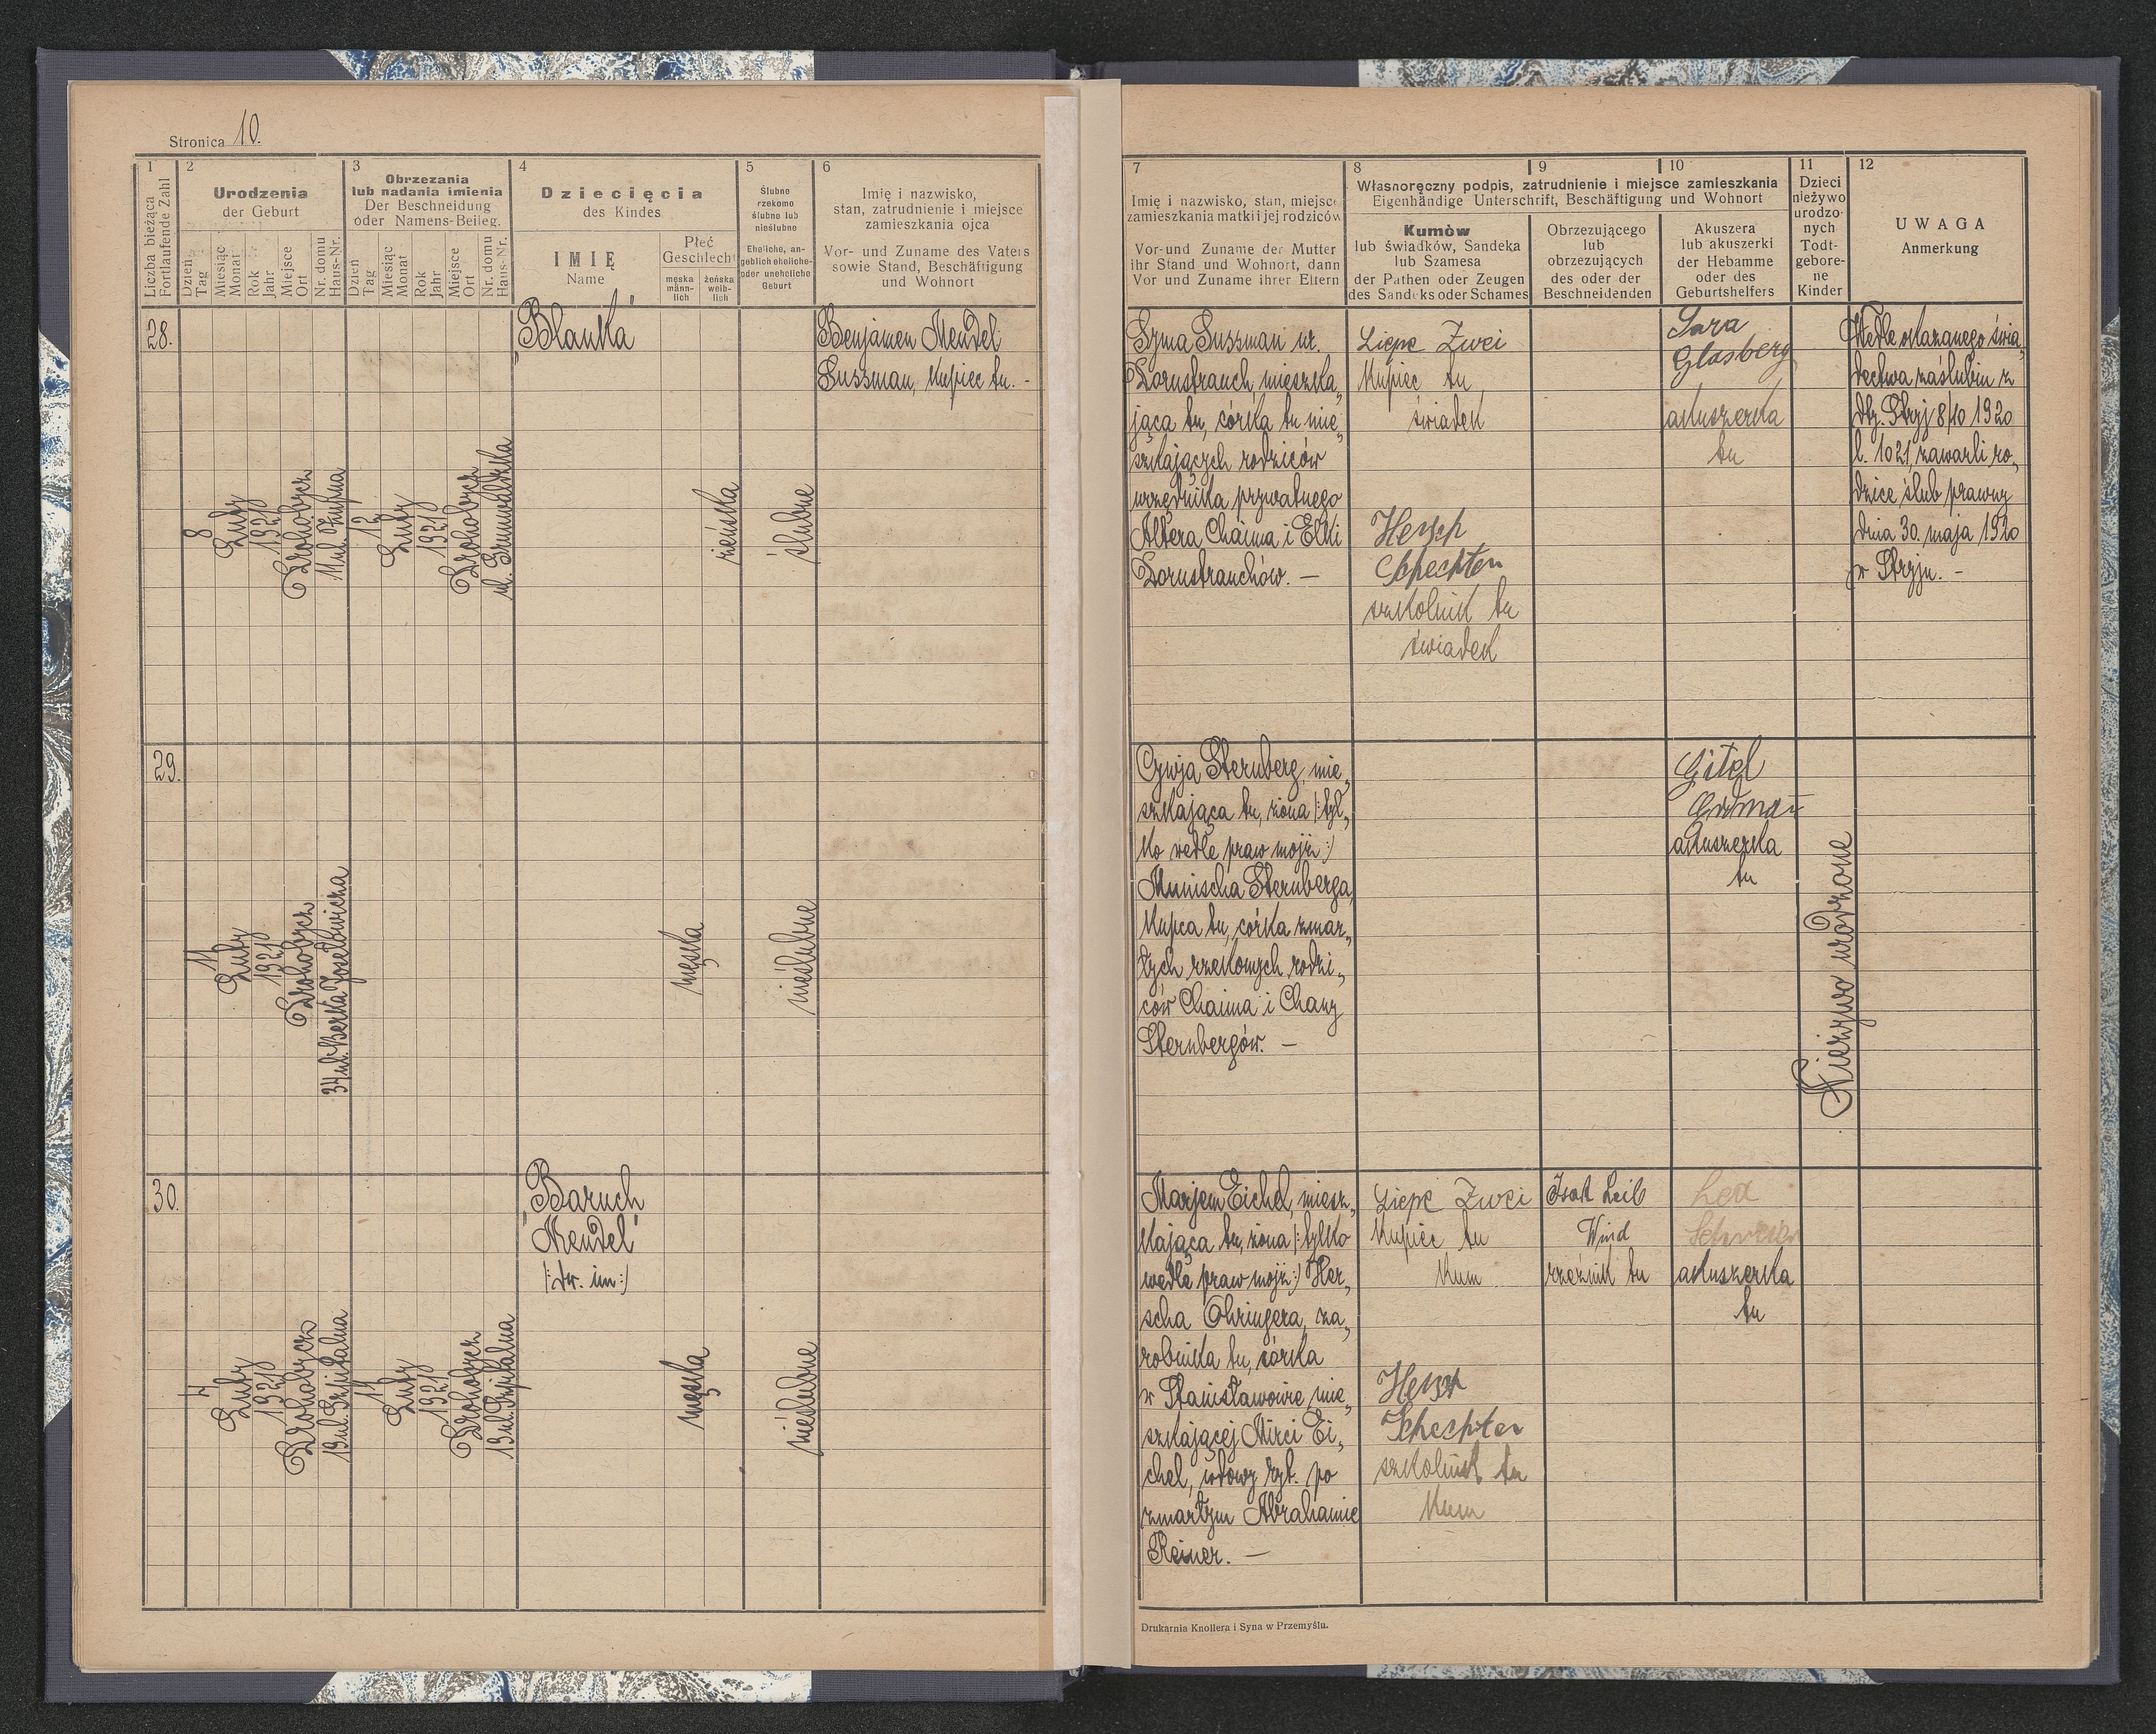 Stronica 10.
1
Liczba bieżąca
Fortlaufende Zahl
2
Urodzenia
der Geburt
Dzień
Tag
Miesiąc
Monat
Rok
Jahr
Miejsce
Ort
Nr. domu
Haus-Nr.
3
Obrzezania
lub nadania imienia
Der Beschneidung
oder Namens-Beileg.
Dzień
Tag
Miesiąc
Monat
Rok
Jahr
Miejsce
Ort
Nr. domu
Haus-Nr.
4
Dziecięcia
des Kindes
IMIĘ
Name
Płeć
Geschlecht
męska
männ-
lich
żeńska
weib-
lich
5
Ślubne
rzekomo
ślubne lub
nieślubne
Eheliche, an-
geblich eheliche-
oder uneheliche
Geburt
6
Imię i nazwisko,
stan, zatrudnienie i miejsce
zamieszkania ojca
Vor- und Zuname des Vaters
sowie Stand, Beschäftigung
und Wohnort
7
Imię i nazwisko, stan, miejsce
zamieszkania matki i jej rodziców
Vor-und Zuname der Mutter
ihr Stand und Wohnort, dann
Vor und Zuname ihrer Eltern
8
9
10
Własnoręczny podpis, zatrudnienie i miejsce zamieszkania
Eigenhändige Unterschrift, Beschäftigung und Wohnort
Kumów
lub świadków, Sandeka
lub Szamesa
der Pathen oder Zeugen
des Sandeks oder Schames
Obrzezującego
lub
obrzezujących
des oder der
Beschneidenden
Akuszera
lub akuszerki
der Hebamme
oder des
Geburtshelfers
11
Dzieci
nieżywo
urodzo-
nych
Todt-
gebore-
ne
Kinder
12
UWAGA
Anmerkung
28.
8
Luty
1921
Drohobycz
ul. Żupna
12
Luty
1921
Drohobycz
ul. Grunwaldzka
"Blanka"
żeńska
ślubne
Benjamin Mendel
Sussman, kupiec tu. -
Syma Sussman ur.
Dornstrauch, mieszka„
jąca tu, córka tu mie„
szkających rodziców
urzędnika prywatnego
Altera Chaima i Elki
Dornstrauchów. —
Liepe Zwei
kupiec tu
świadek
Hersch
Schechter
szkolnik tu
świadek
Sara
Glasberg
akuszerka
tu
Wedle okazanego świa„
dectwa zaślubin z
dtg. Stryj 8/10 1920
l. 1021, zawarli ro„
dzice ślub prawny
dnia 30. maja 1920
w Stryju. -
29.
11
Luty
1921
Drohobycz
34 ul. Berka Joselowicza
męska
nieślubne
Cywja Sternberg, mie„
szkająca tu, żona /:tyl„
ko wedle praw mojż:/
Munischa Sternberga,
kupca tu, córka zmar„
łych rzekomych rodzi„
ców Chaima i Chany
Sternbergów. —
Gitel
akuszerka
tu
Nieżywo urodzone
30.
4
Luty
1921
Drohobycz
19 ul. Szpitalna
11
Luty
1921
Drohobycz
19 ul. Szpitalna
"Baruch
Mendel"
/:dw. im:/
męska
nieślubne
Marjem Eichel, miesz„
kająca tu, żona /:tylko
wedle praw mojż:/ Her„
scha Öhringera, za„
robnika tu, córka
w Stanisławowie mie„
szkającej Mirci Ei„
chel, wdowy ryt. po
zmarłym Abrahamie
Reiner. —
Liepe Zwei
kupiec tu
kum
Hersch
Schechter
szkolnik tu
kum
Isak Leib
Wind
rzeźnik tu
Lea
akuszerka
tu
Drukarnia Knollera i Syna w Przemyślu.